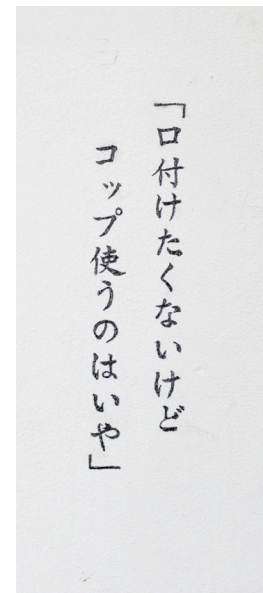 「口付けたくないけど
コップ使うのはいや」